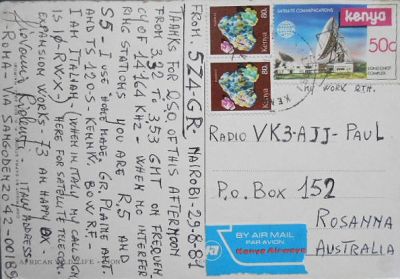 FROM. 5Z4.GR. NAIROBI-29-8-81
THANKS FOR QSO, OF THIS AFTERNOON
FROM 3,32 TO 3,53 GMT ON FREQUEN
CY OF 24164 KHZ - WHEN NO INTERFE
RING STATIONS YOU ARE R,5 AND
S5 - I USE HOME MADE GR. PLANE ANT.
AND TS 120-S- KENW. 80W RF-
I AM ITALIAN - (WHEN IN ITALY MY CALL SIGN
HERE FOR SATELLITE TELECOM.
EXPANSION WORKS. 73 AN HAPPY DX.
ITALY ADDRESS
ROMA - VIA 00189
AFRICAN WILDLIFE - LION
80c
Kenya
80c
Kenya
SATELLITE COMMUNICATIONS
kenya
50c
LONGONOT
COMPLEX
MY WORK QTH.
RADIO VK3-AJJ-PAUL
P.O. BOX 152
ROSANNA
AUSTRALIA
BY AIR MAIL
PAR AVION
Kenya Airways